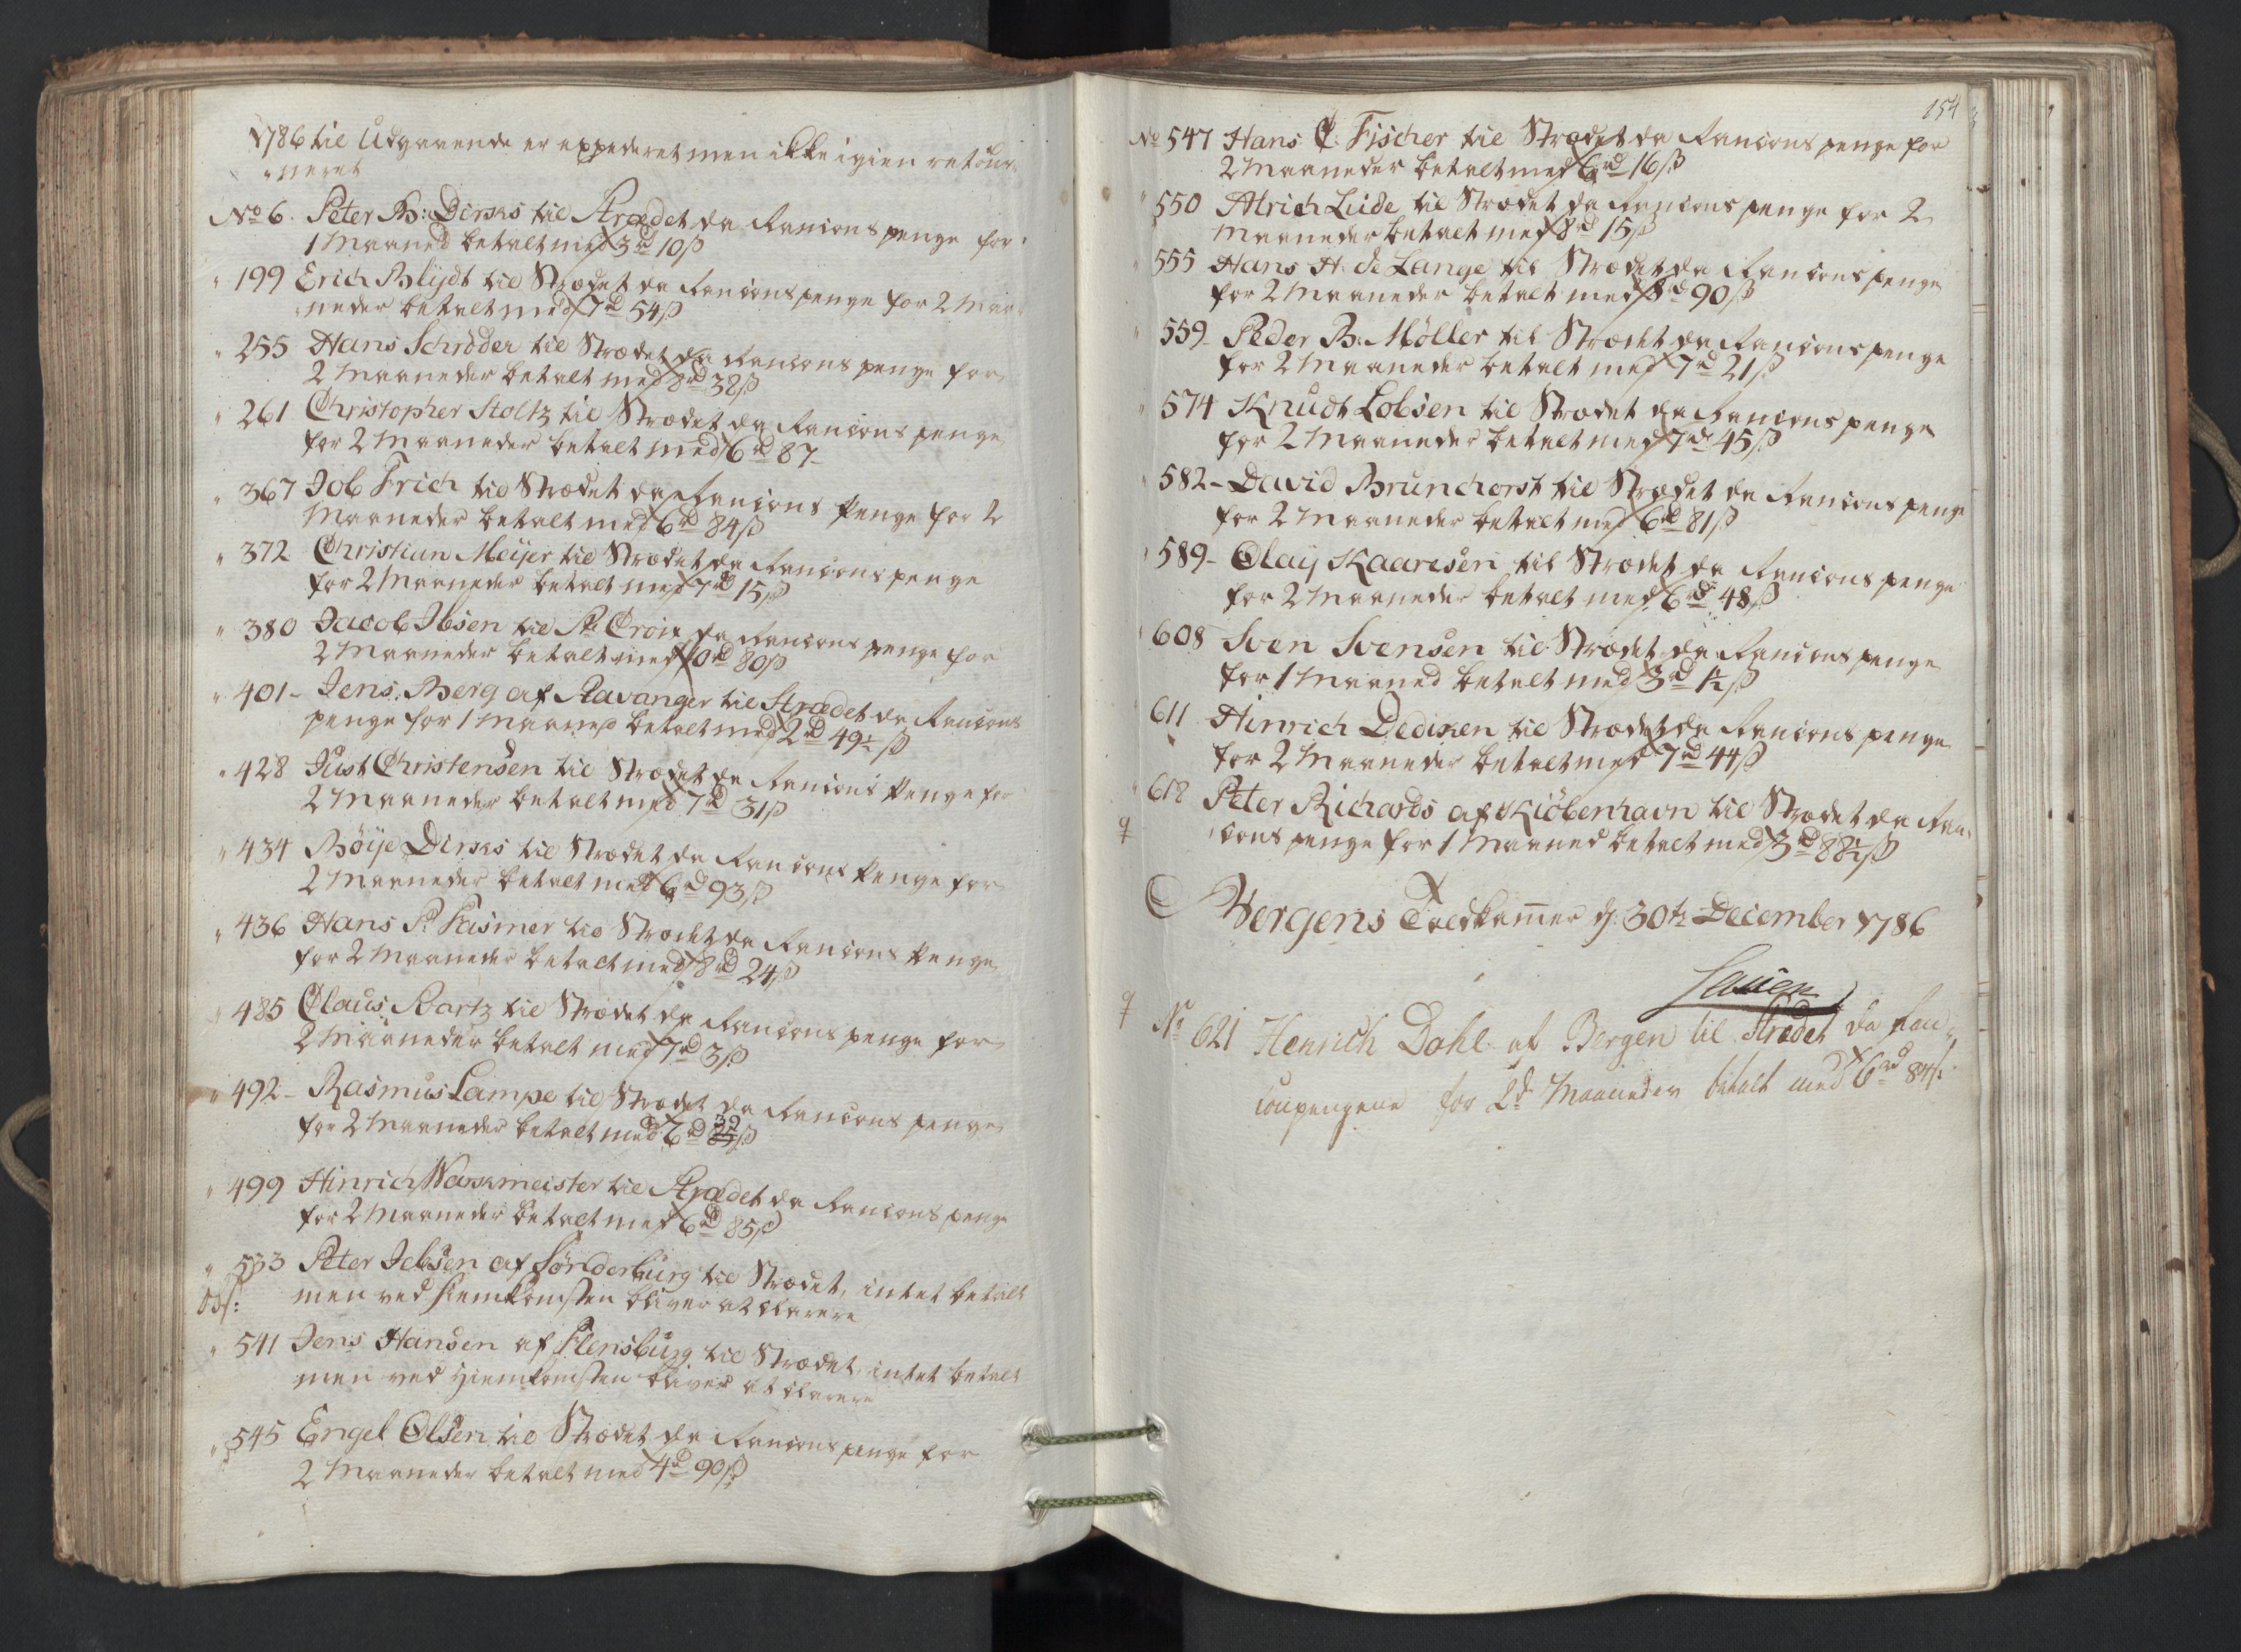 1786 til Udgaaende er expederet men ikke igien retour-
neret
No 6. Peter B: Dirks til Strædet da Rancons penge for
1 Maaned betalt med 3 rd 10 ß
" 199 Erich Blijdt til Strædet da Rancons penge for 2 Maa-
neder betalt med 7 rd 54 ß
" 255 Hans Schröder til Strædet da Rancons penge for
2 Maaneder betalt med 8 rd 38 ß
" 261 Christopher Stoltz til Strædet da Rancons penge
for 2 Maaneder betalt med 6 rd 87 -
" 367 Job Frich til Strædet da Rancons Penge for 2
Maaneder betalt med 6 rd 84 ß
" 372 Christian Meijer til Strædet da Rancons penge
for 2 Maaneder betalt med 7 rd 15 ß
" 380 Jacob Ibsen til St Croix da Rancons penge for
2 Maaneder betalt med 10 rd 80 ß
" 401 - Jens Berg af Stavanger til Strædet da Rancons
penge for 1 Maaned betalt med 2 rd 49 ½ ß
" 428 Just Christensen til Strædet da Rancons Penge for
2 Maaneder betalt med 7 rd 31 ß
" 434 Böije Dirks til Strædet da Rancons Penge for
2 Maaneder betalt med 6 rd 93 ß
" 436 Hans P. Fasmer til Strædet da Rancons Penge
for 2 Maaneder betalt med 8 rd 24 ß
" 485 Claus Bartz til Strædet da Rancons penge for
2 Maaneder betalt med 7 rd 3 ß
" 492 - Rasmus Lampe til Strædet da Rancons penge
for 2 Maaneder betalt med 6 rd 39 ß
" 499 Hinrich Waskmeister til Strædet da Rancons penge
for 2 Maaneder betalt med 6 rd 85 ß
" 533 Peter Jebsen af Sönderburg til Strædet, intet betalt
Obs: men ved Hiemkomsten bliver at clarere
" 541 Jens Hansen af Flensburg til Strædet, intet betalt
men ved Hiemkomsten bliver at clarere
" 545 Engel Olsen til Strædet da Rancons penge for
2 Maaneder betalt med 4 rd 90 ß
154
No 547 Hans C: Fischer til Strædet da Rancons penge for
2 Maaneder betalt med 6 rd 16 ß
" 550 Alrich Lüde til Strædet da Rancons penge for 2
Maaneder betalt med 8 rd 15 ß
" 555 Hans H. de Lange til Strædet da Rancons penge
for 2 Maaneder betalt med 8 rd 90 ß
" 559 - Peder B: Möller til Strædet da Rancons penge
for 2 Maaneder betalt med 7 rd 21 ß
" 574 Knudt Lobsen til Strædet da Rancons penge
for 2 Maaneder betalt med 7 rd 45 ß
" 582 - David Brunchorst til Strædet da Rancons penge
for 2 Maaneder betalt med 6 rd 81 ß
" 589 - Olaij Kaaresen til Strædet da Rancons penge
for 2 Maaneder betalt med 6 rd 48 ß
" 608 Sven Svensen til Strædet da Rancons penge
for 1 Maaned betalt med 3 rd ½ ß
" 611 Hinrich Dedeken til Strædet da Rancons penge
for 2 Maaneder betalt med 7 rd 44 ß
" 618 Peter Richards af Kiöbenhavn til Strædet da Ran-
cons penge for 1 Maaned betalt med 3 rd 88 ½ ß
Bergens Toldkammer d: 30te December 1786
No 621 Henrich Dahl af Bergen til Strædet da Ran-
conpengene for 2d Maaneder betalt med 6 rd 84 ß.